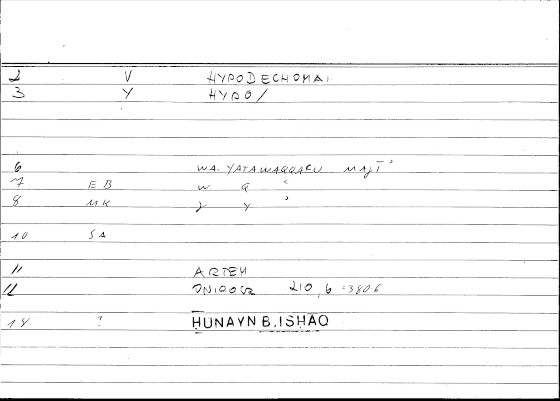 2 V HYPODECHOMAI
3 Y HYPO/
6 WA-YATAWAQQAʿU MAǦĪʾ
7 EB W Q ʿ
8 MK Y Y ʾ
10 SA
11 ARTEM
12 ONIROCR 210,6 = 380 6
14 ? ḤUNAYN B. ISḤĀQ